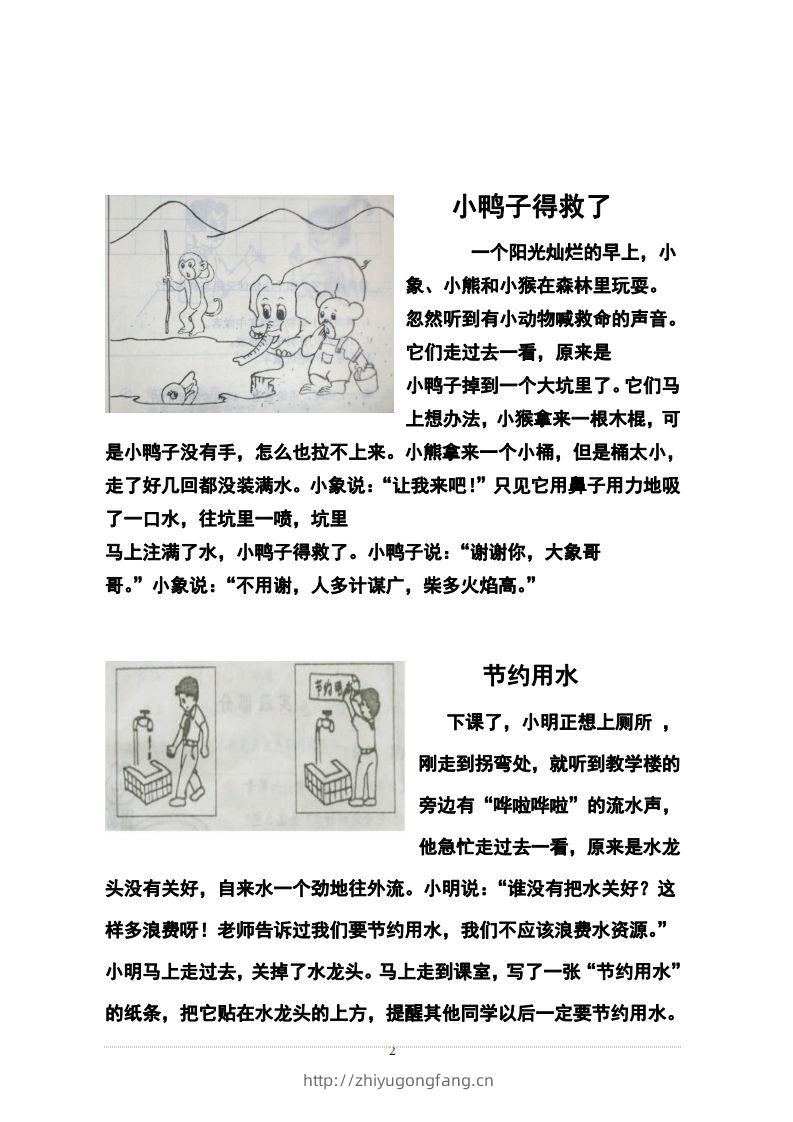 小鸭子得救了
一个阳光灿烂的早上，小
象、小熊和小猴在森林里玩耍。
忽然听到有小动物喊救命的声音。
它们走过去一看，原来是
小鸭子掉到一个大坑里了。它们马
上想办法，小猴拿来一根木棍，可
是小鸭子没有手，怎么也拉不上来。小熊拿来一个小桶，但是桶太小，
走了好几回都没装满水。小象说：“让我来吧！”只见它用鼻子用力地吸
了一口水，往坑里一喷，坑里
马上注满了水，小鸭子得救了。小鸭子说：“谢谢你，大象哥
哥。”小象说：“不用谢，人多计谋广，柴多火焰高。”
节约用水
节约用水
下课了，小明正想上厕所 ，
刚走到拐弯处，就听到教学楼的
旁边有“哗啦哗啦”的流水声，
他急忙走过去一看，原来是水龙
头没有关好，自来水一个劲地往外流。小明说：“谁没有把水关好？这
样多浪费呀！老师告诉过我们要节约用水，我们不应该浪费水资源。”
小明马上走过去，关掉了水龙头。马上走到课室，写了一张“节约用水”
的纸条，把它贴在水龙头的上方，提醒其他同学以后一定要节约用水。
2
http://zhiyugongfang.cn